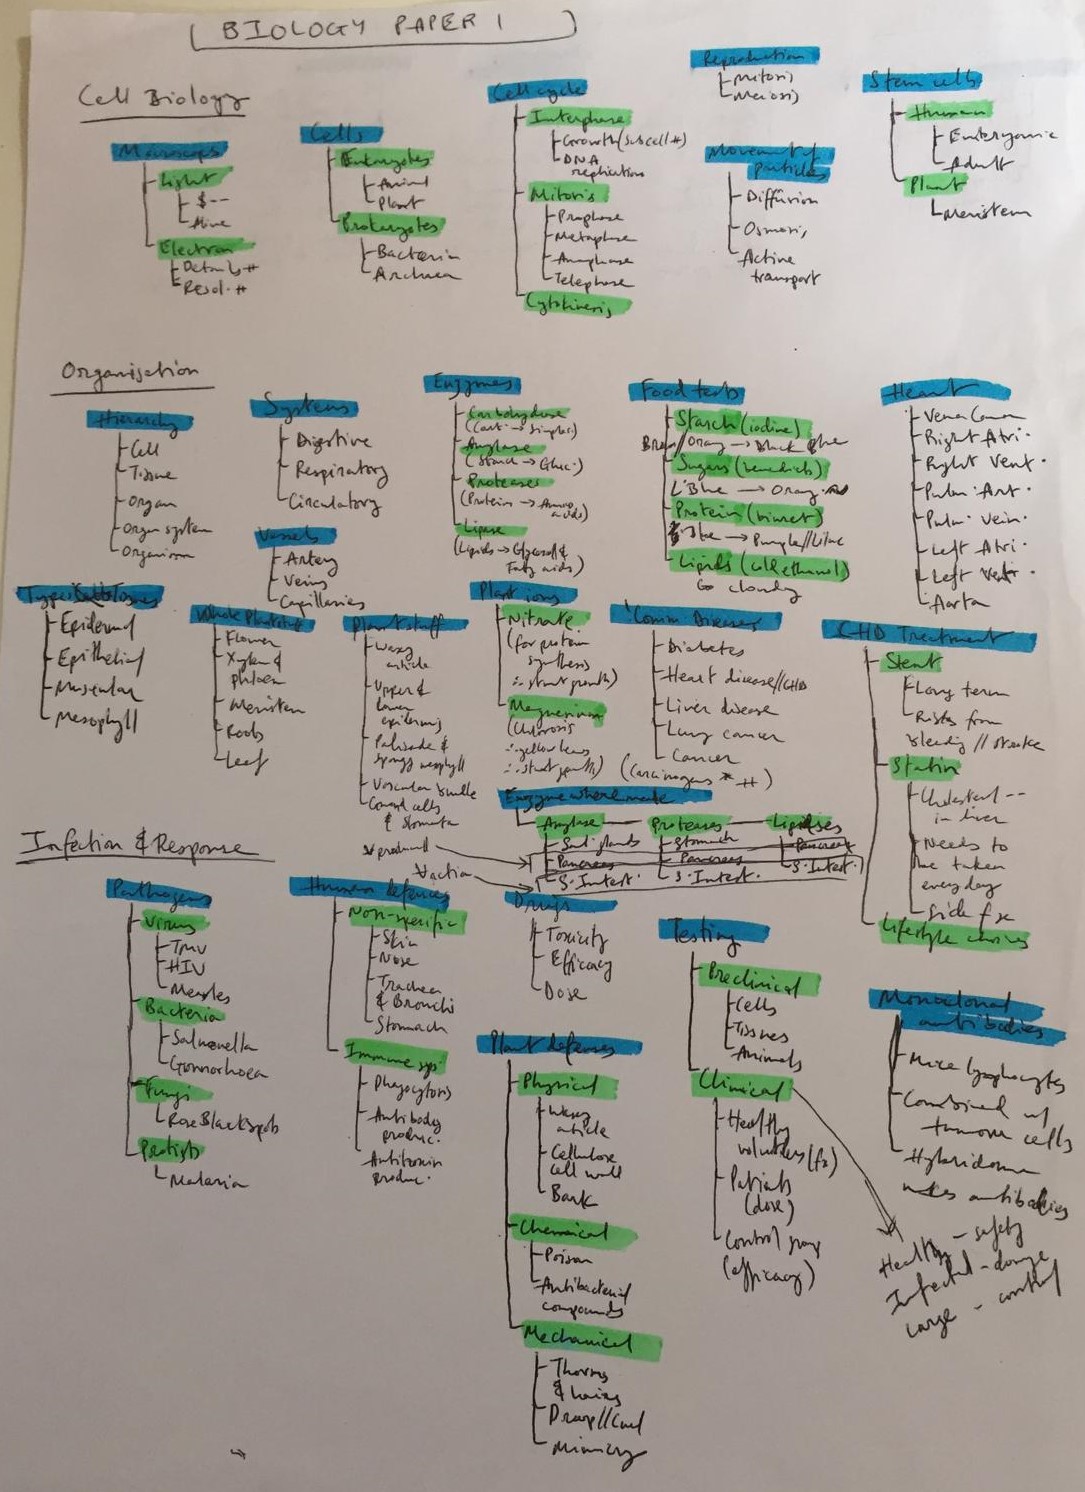 BIOLOGY PAPER 1
Cell Biology
Microscope
Light
$--
Alive
Electron
Details #
Resol. #
Cells
Eukaryotes
Animal
Plant
Prokaryotes
Bacteria
Archaea
Cell cycle
Interphase
Growth (subcell #)
DNA
replication
Mitosis
Prophase
Metaphase
Anaphase
Telephase
Cytokinesis
Reproduction
Mitosis
Meiosis
Movement of
particles
Diffusion
Osmosis
Active
transport
Stem cells
Human
Embryonic
Adult
Plant
Meristem
Organisation
Hierarchy
Cell
Tissue
Organ
Organ system
Organism
Systems
Digestive
Respiratory
Circulatory
Vessels
Artery
Veins
Capillaries
Enzymes
Carbohydrase
(Carb → Simples)
Amylase
(Starch → Gluc.)
Proteases
(Proteins → Amino
acids)
Lipase
(Lipids → Glycerol &
Fatty acids)
Food tests
Starch (iodine)
Brown//Orang → Black Blue
Sugars (benedicts)
L'Blue → Orang.
Protein (biuret)
Blue → Purple//Lilac
Lipids (cold ethanol)
Go cloudy
Heart
Vena Cava
Right Atri.
Right Vent.
Pulm. Art.
Pulm. Vein.
Left Atri.
Left Vent.
Aorta
Types Tissues
Epidermal
Epithelial
Muscular
Mesophyll
Whole Plant
Flower
Xylem &
phloem
Meristem
Roots
Leaf
Plant stuff
Waxy
cuticle
Upper &
lower
epidermis
Palisade &
spongy mesophyll
Vascular bundle
Guard cells
& Stomata
Plant ions
Nitrate
(for protein
synthesis
∴ stunt growth)
Magnesium
(Chlorosis
∴ yellow leaves
∴ stunt growth)
Comm Diseases
Diabetes
Heart disease//CHD
Liver disease
Lung cancer
Cancer
(Carcinogens * #)
CHD Treatment
Stent
Long term
Risks from
bleeding // stroke
Statin
Cholesterol --
in liver
Needs to
be taken
everyday
Side fx
Lifestyle choices
Enzyme where made
Amylase
Sal glands
Pancreas
S. Intest.
Proteases
Stomach
Pancreas
S. Intest.
Lipases
Pancreas
S. Intest.
Infection & Response
Pathogens
Virus
TMV
HIV
Measles
Bacteria
Salmonella
Gonnorhoea
Fungi
Rose Black spots
Protists
Malaria
Human defences
Non-specific
Skin
Nose
Trachea
& Bronchi
Stomach
Immune sys.
Phagocytosis
Antibody
produc.
Antitoxin
produc.
Drugs
Toxicity
Efficacy
Dose
Plant defenses
Physical
Waxy
cuticle
Cellulose
cell wall
Bark
Chemical
Poison
Antibacterial
compounds
Mechanical
Thorns
& hairs
Droop//Curl
Mimicry
Testing
Preclinical
Cells
Tissues
Animals
Clinical
Healthy
volunteers (fx)
Patients
(dose)
Control group
(efficacy)
Monoclonal
antibodies
Mice lymphocytes
Combined w/
tumour cells
Hybridoma
makes antibodies
Healthy - safety
Infected - dosage
Large - control